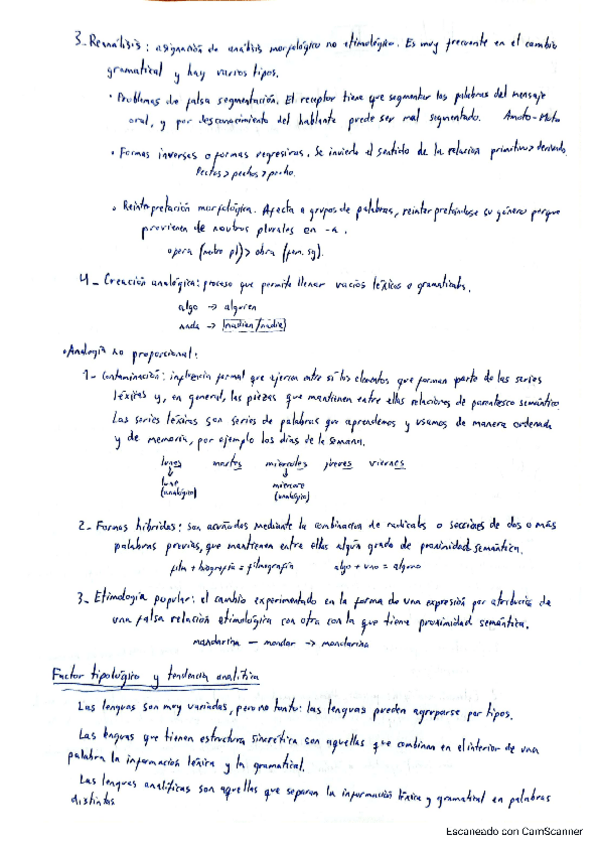 3_ Reanálisis: asignación de análisis morfológico no etimológico. Es muy frecuente en el cambio
gramatical y hay varios tipos.
· Problemas de falsa segmentación. El receptor tiene que segmentar las palabras del mensaje
oral, y por desconocimiento del hablante puede ser mal segmentado. Amoto-Moto
· Formas inversas o formas regresivas. Se invierte el sentido de la relación primitivo > derivado.
Pectos > pechos > pecho.
· Reinterpretación morfológica. Afecta a grupos de palabras, reinterpretándose su género porque
provienen de neutros plurales en -a.
opera (neutro pl) > obra (fem. sg).
4_ Creación analógica: proceso que permite llenar vacíos léxicos o gramaticales.
algo → alguien
nada → nadien/nadie
· Analogía no proporcional:
1_ Contaminación: influencia formal que ejercen entre sí los elementos que forman parte de las series
léxicas y, en general, las piezas que mantienen entre ellas relaciones de parentesco semántico.
Las series léxicas son series de palabras que aprendemos y usamos de manera ordenada
y de memoria, por ejemplo los días de la semana.
lunes martes miercoles jueves viernes
↓ ↓
lune miercore
(analógico) (analógico)
2_ Formas híbridas: son acuñadas mediante la combinación de radicales o secciones de dos o más
palabras previas, que mantienen entre ellas algún grado de proximidad semántica.
film + biografía = filmografía algo + uno = alguno
3_ Etimología popular: el cambio experimentado en la forma de una expresión por atribución de
una falsa relación etimológica con otra con la que tiene proximidad semántica.
mandarina — mondar → mondarina
Factor tipológico y tendencia analítica
Las lenguas son muy variadas, pero no tanto: las lenguas pueden agruparse por tipos.
Las lenguas que tienen estructura sincrética son aquellas que combinan en el interior de una
palabra la información léxica y la gramatical.
Las lenguas analíticas son aquellas que separan la información léxica y gramatical en palabras
distintas
Escaneado con CamScanner